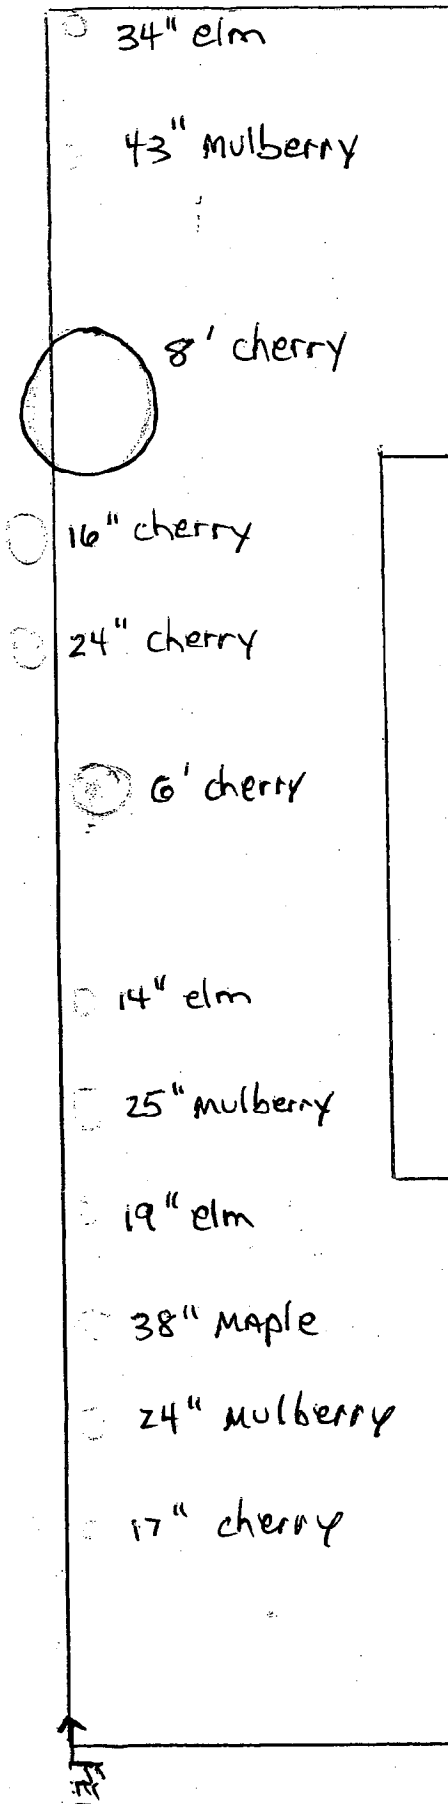 34" elm
43" Mulberry
8' cherry
16" cherry
24" cherry
6' cherry
14" elm
25" Mulberry
19" elm
38" MAple
24" Mulberry
17" cherry